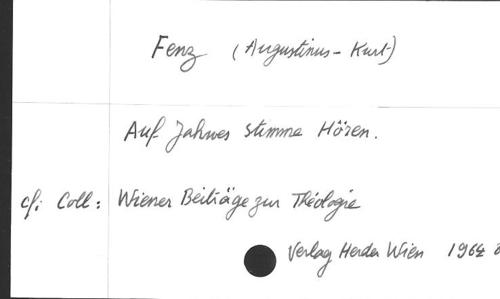 Fenz (Augustinus-Kurt)
Auf Jahwes stimme Hören.
cf: Coll: Wiener Beiträge zur Théologie
Verlag Herder Wien 1964